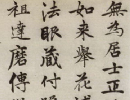 無為居士正
如来舉花
法眼藏付
祖達磨傳